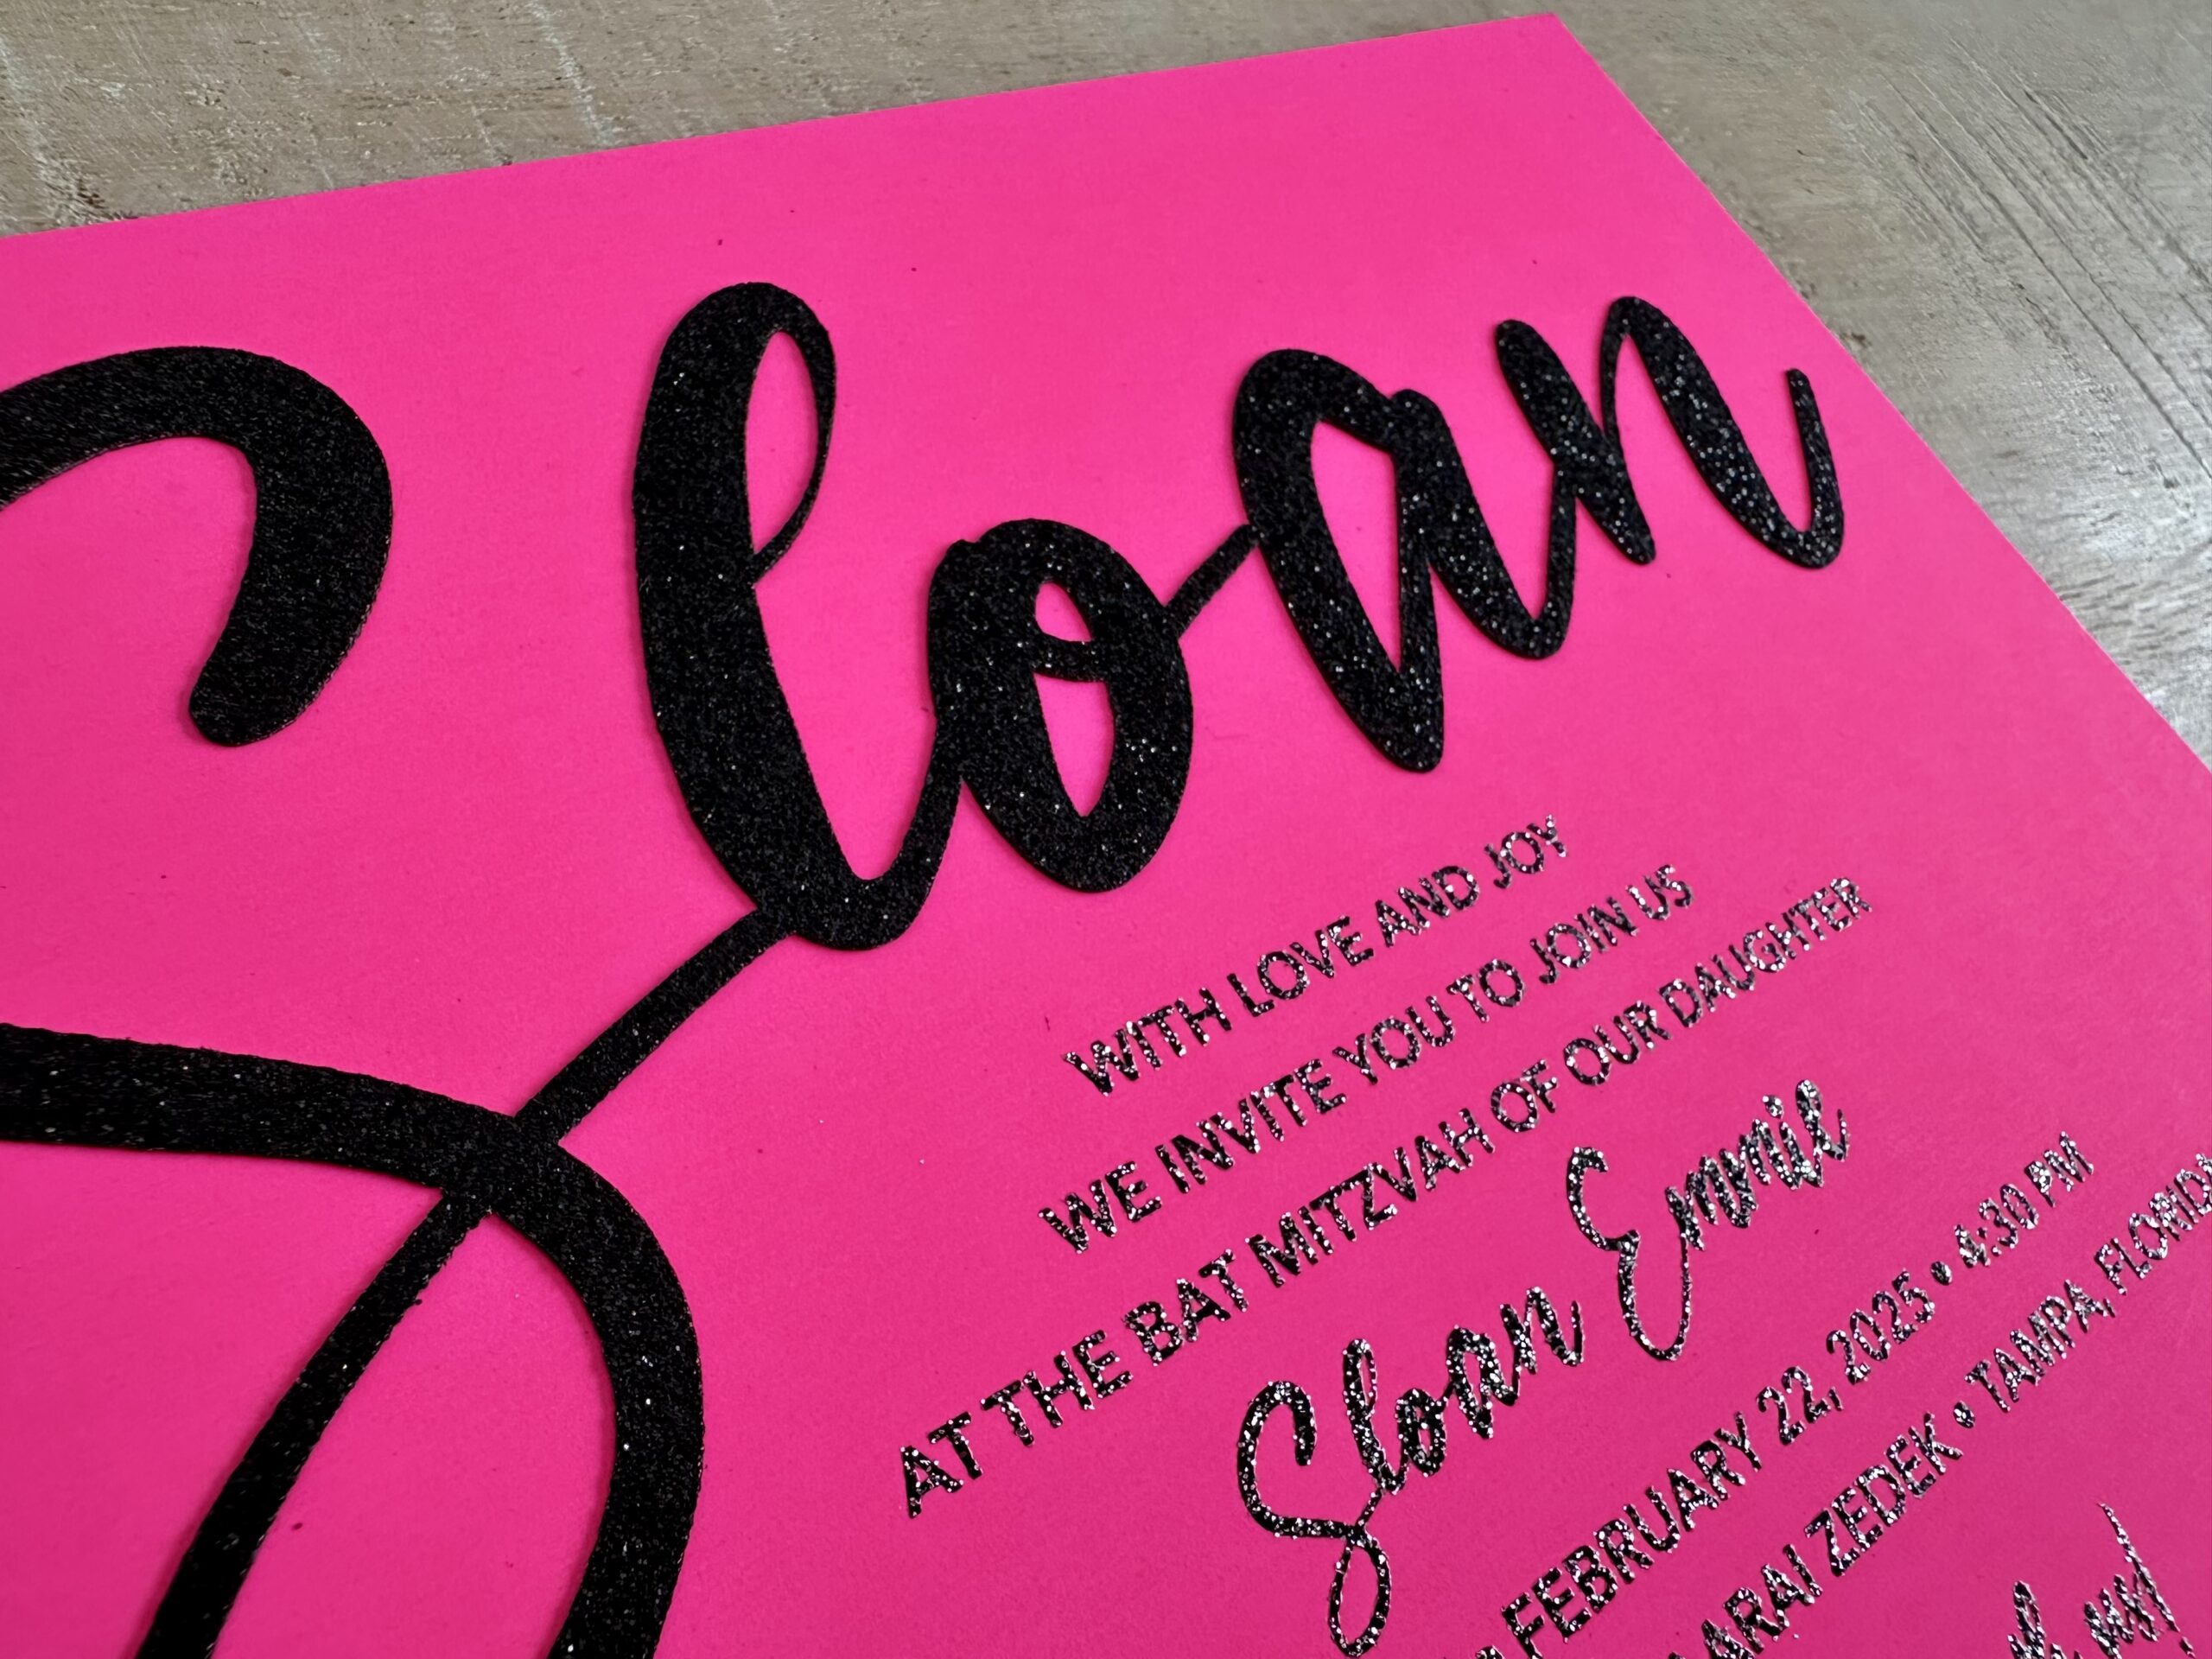 Sloan
WITH LOVE AND JOY
WE INVITE YOU TO JOIN US
AT THE BAT MITZVAH OF OUR DAUGHTER
Sloan Emmie
FEBRUARY 22, 2025 • 4:30 PM
ARAI ZEDEK • TAMPA, FLORIDA